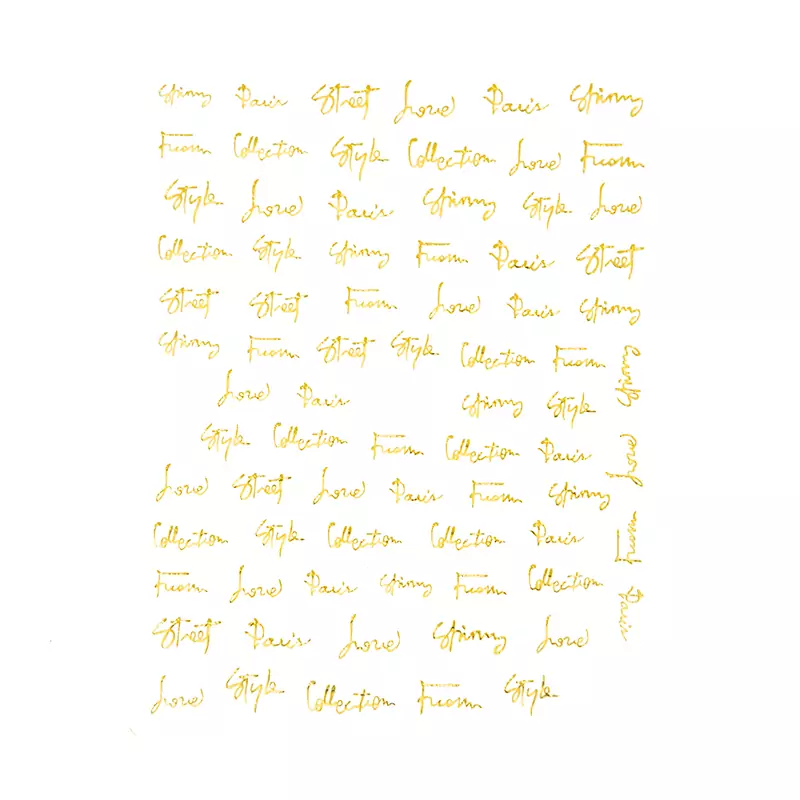 Paris Street Love Paris
From Collection Style Collection Love From
Style Love Paris Style Love
Collection Style From Paris Street
Street Street From Love Paris
From Street Style Collection From
Love Paris Style
Style Collection From Collection Paris
Love Street Love Paris From
Collection Style Collection Collection Paris
From Love Paris From Collection
Street Paris Love Love
Love Style Collection From Style
Love
From
Paris